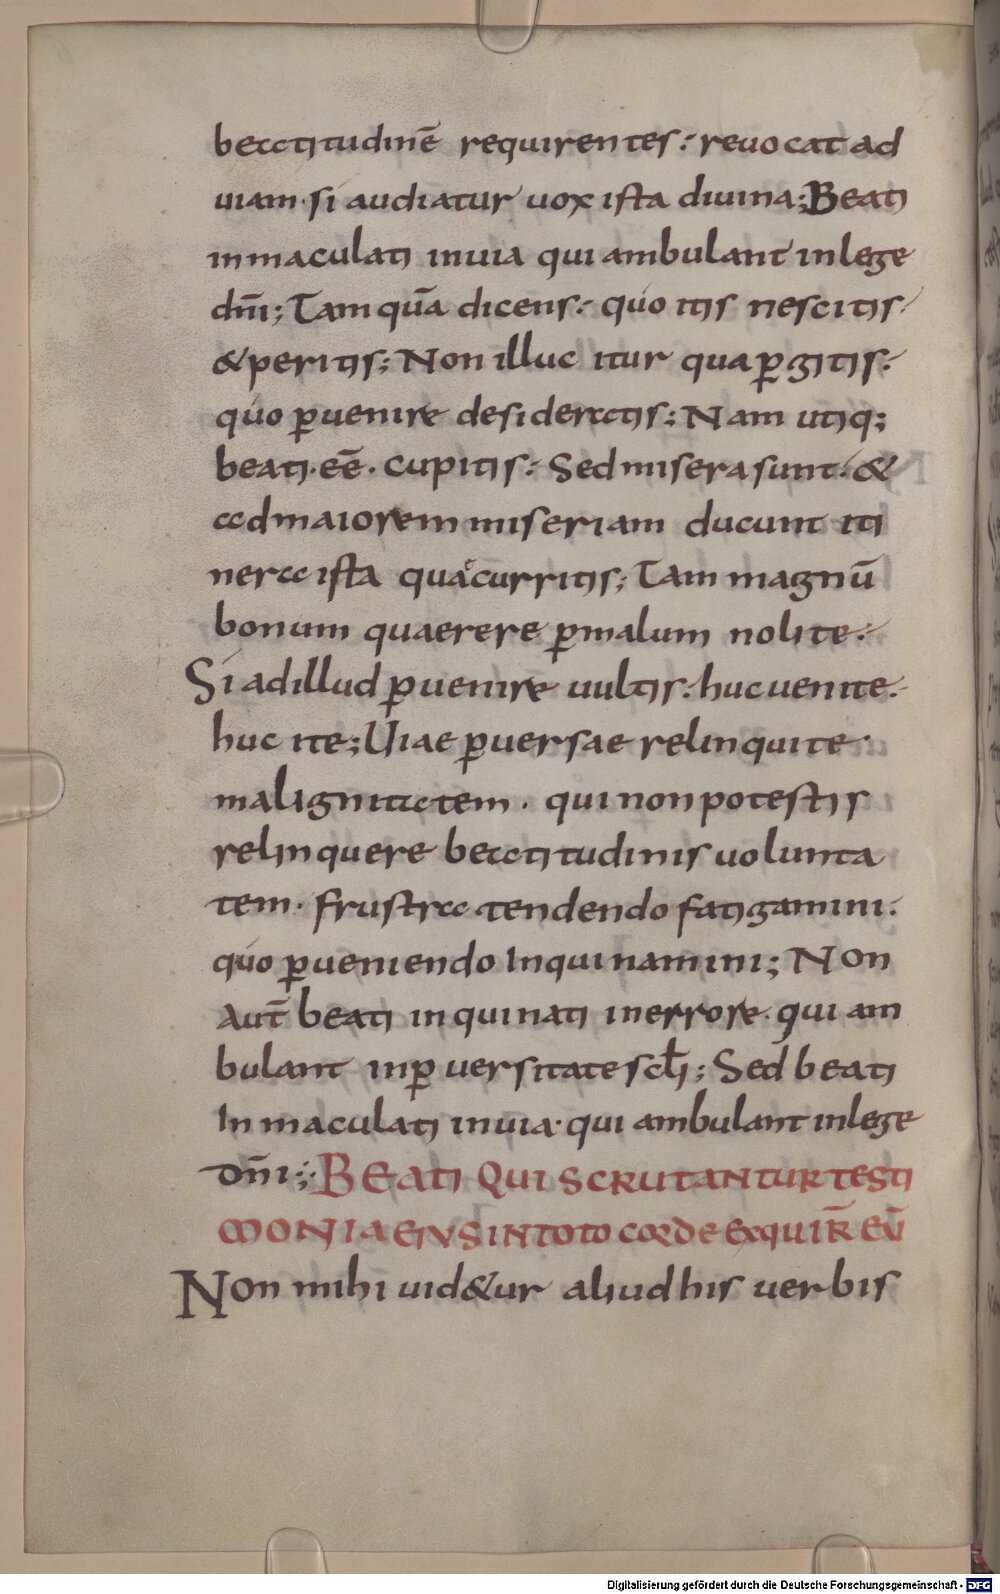 beatitudinē requirentes: reuocat ad
uiam· si audiatur uox ista diuina; Beati
inmaculati inuia qui ambulant inlege
dn̄i; Tam quā dicens: quo itis nescitis·
& peritis; Non illuc itur qua ꝑgitis:
quo ꝑuenire desideratis; Nam utiq;
beati· eē· cupitis: Sed misera sunt· &
admaiorem miseriam ducunt iti
nera ista qua curritis; Tam magnū
bonum quaerere ꝑmalum nolite:
Si adillud ꝑuenire uultis: huc uenite:
huc ite; Uiae ꝑuersae relinquite
malignitatem· qui non potestis
relinquere beatitudinis uolunta
tem· frustra tendendo fatigamini:
quo ꝑueniendo inquinamini; Non
aut̄ beati inquinati inerrore· qui am
bulant inꝑuersitate sc̄li; Sed beati
Inmaculati inuia· qui ambulant inlege
Dn̄i; BEATI QUI SCRUTANTUR TESTI
MONIA EIUS IN TOTO CORDE EXQUIR̄ EŪ
Non mihi uid&ur aliud his uerbis
Digitalisierung gefördert durch die Deutsche Forschungsgemeinschaft - DFG